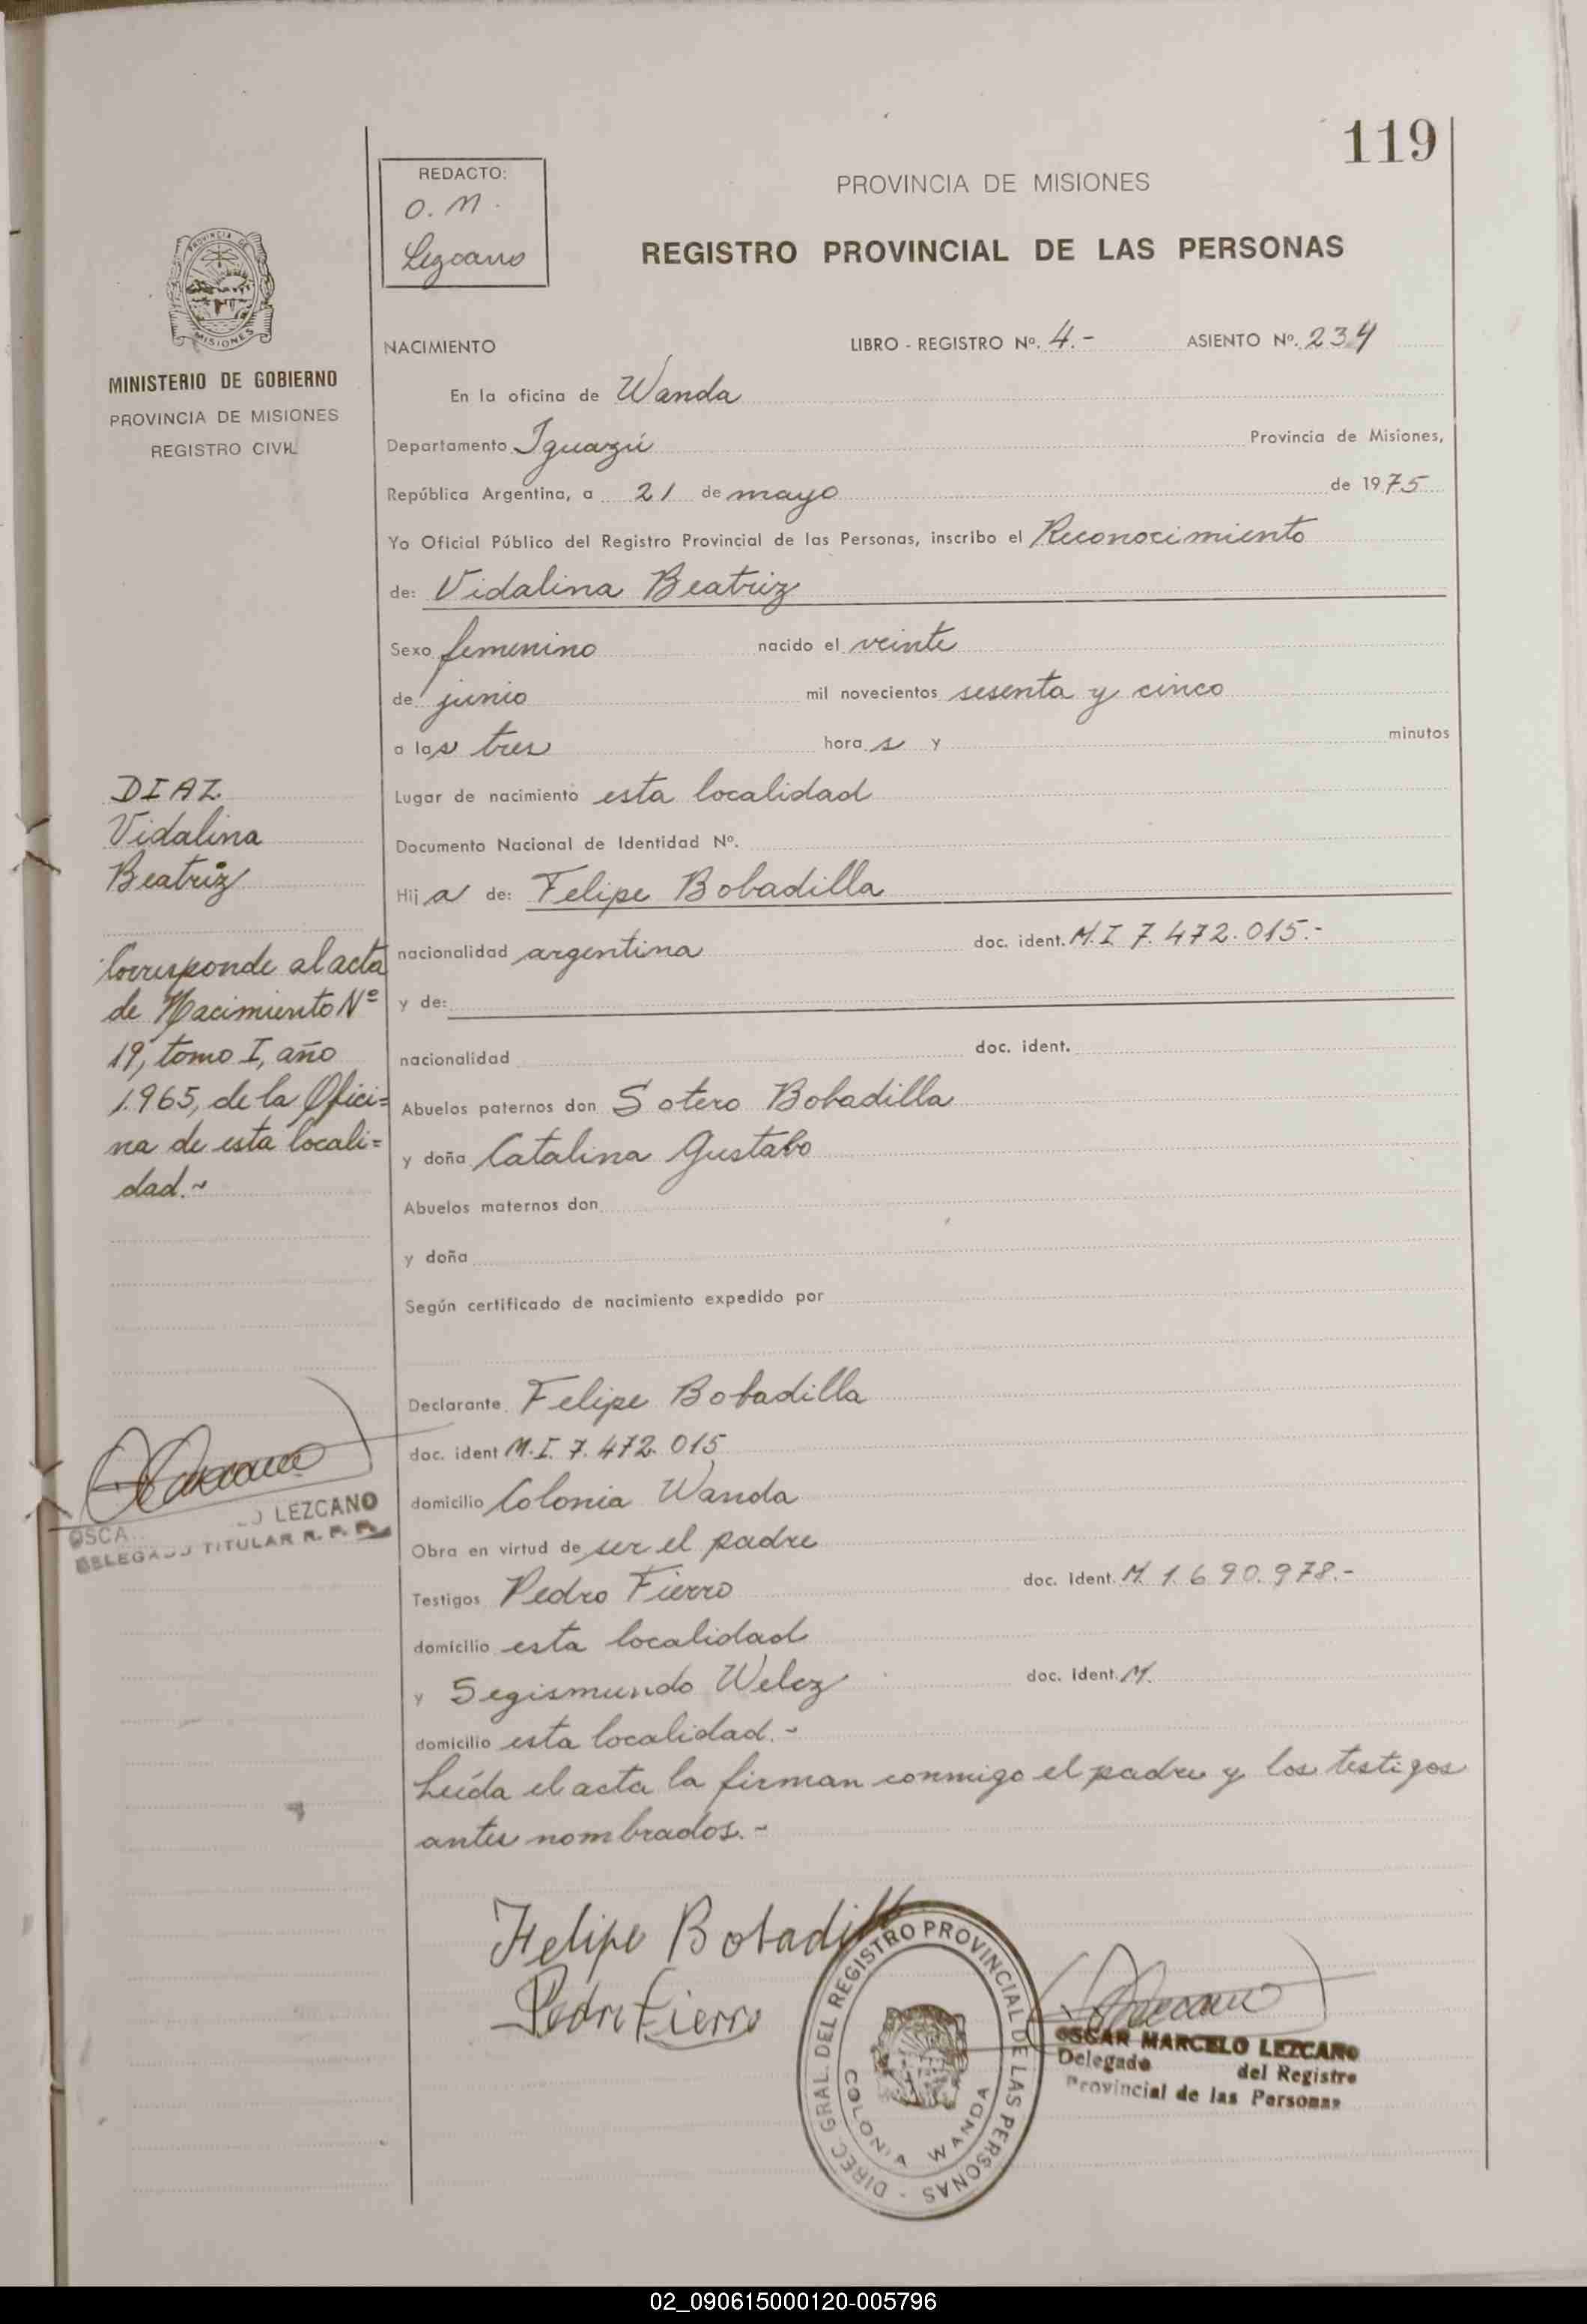 119
REDACTO:
O. M.
Lezcano
PROVINCIA DE MISIONES
REGISTRO PROVINCIAL DE LAS PERSONAS
PROVINCIA DE
MISIONES
MINISTERIO DE GOBIERNO
PROVINCIA DE MISIONES
REGISTRO CIVIL
NACIMIENTO LIBRO - REGISTRO Nº. 4.- ASIENTO Nº. 234
En la oficina de Wanda
Departamento Iguazú Provincia de Misiones,
República Argentina, a 21 de mayo de 1975
Yo Oficial Público del Registro Provincial de las Personas, inscribo el Reconocimiento
de: Vidalina Beatriz
Sexo femenino nacido el veinte
de junio mil novecientos sesenta y cinco
a las tres horas y minutos
Lugar de nacimiento esta localidad
Documento Nacional de Identidad Nº.
Hija de: Felipe Bobadilla
nacionalidad argentina doc. ident. M.I 7.472.015.-
y de:
nacionalidad doc. ident.
Abuelos paternos don Sotero Bobadilla
y doña Catalina Gustabo
Abuelos maternos don
y doña
Según certificado de nacimiento expedido por
Declarante Felipe Bobadilla
doc. ident M.I. 7.472.015
domicilio Colonia Wanda
Obra en virtud de ser el padre
Testigos Pedro Fierro doc. ident. M. 1.690.978.-
domicilio esta localidad
y Segismundo Welez doc. ident. M.
domicilio esta localidad.-
Leída el acta la firman conmigo el padre y los testigos
antes nombrados.-
DIAZ
Vidalina
Beatriz
Corresponde al acta
de Nacimiento Nº
19, tomo I, año
1.965, de la Ofici=
na de esta locali=
dad.-
OSCA LEZCANO
DELEGADO TITULAR R. P. P.
Felipe Bobadilla
Pedro Fierro
DIREC. GRAL. DEL REGISTRO PROVINCIAL DE LAS PERSONAS -
COLONIA WANDA
OSCAR MARCELO LEZCANO
Delegado del Registro
Provincial de las Personas
02_090615000120-005796